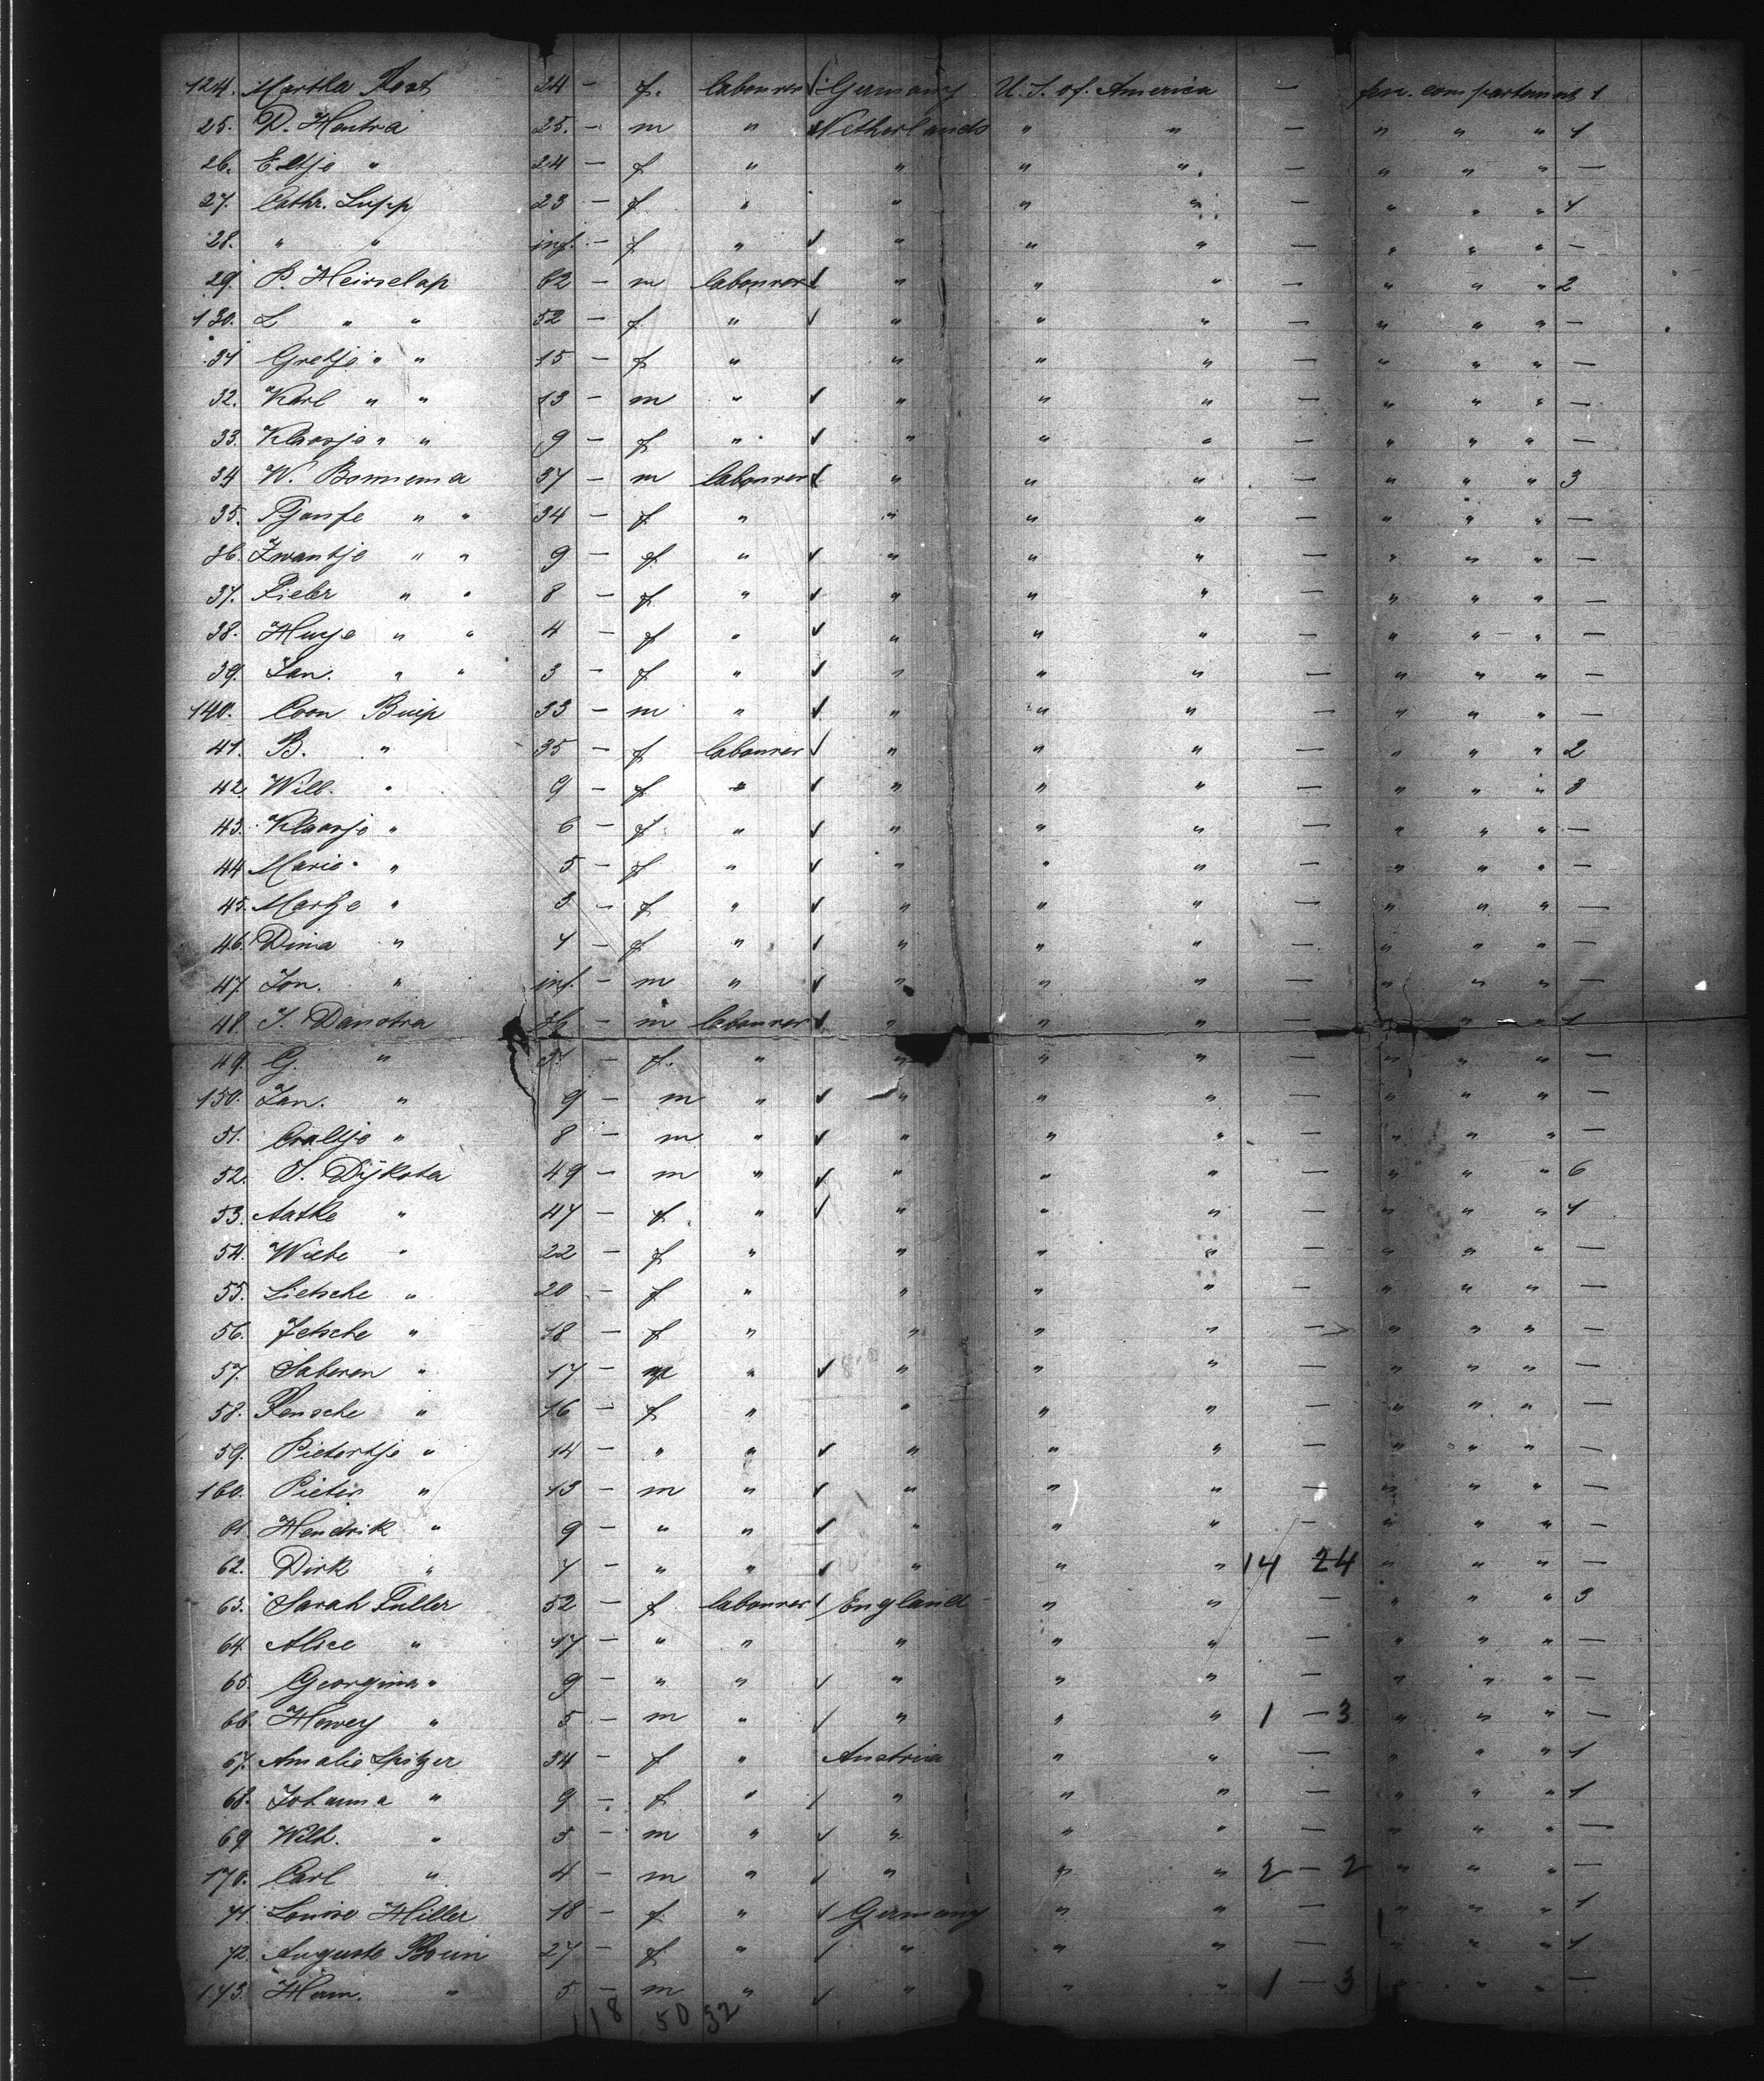 124. Martha Rost 24 – f. labourer Germany U. S. of. America – fen. compartement 1
25. D. Hentra 25. – m " Netherlands " " – " " " 1
26. Eltje " 24 – f " " " " – " " " —
27. Cathr. Lupp 23 – f " " " " – " " " 1
28. " " inf. – f " ✓ " " " – " " " —
29. P. Heirselap 62 – m labourer ✓ " " " – " " " 2
130. L " " 52 – f " ✓ " " " – " " " —
31 Gretje " " 15 – f " " " " – " " " —
32. Karl " " 13 – m " ✓ " " " – " " " —
33. Klaasje " " 9 – f " ✓ " " " – " " " —
34 W. Bommema 37 – m labourer ✓ " " " – " " " 3
35. " " 34 – f " " " " – " " " —
36. Zwantje " " 9 – f " ✓ " " " – " " " —
37. Pieter " " 8 – f " ✓ " " " – " " " —
38. " " 4 – f " ✓ " " " – " " " —
39. Jan. " " 3 – f " ✓ " " " – " " " —
140. Coon Buip 33 – m " ✓ " " " – " " " —
41. B. " 35 – f labourer ✓ " " " – " " " 2
42. Will. " 9 – f " ✓ " " " – " " " 3
43. Klaasje " 6 – f " ✓ " " " – " " " —
44 Marie " 5 – f " ✓ " " " – " " " —
45. Martje " 3 – f " ✓ " " " – " " " —
46. Dina " – f " ✓ " " " – " " " —
47. Jon. " inf. – m " ✓ " " " – " " " —
48. J. Danstra – m labourer ✓ " " " – " " " 1
49. G. " – f. " " " " – " " " —
150. Jan. " 9 – m " ✓ " " " – " " " —
51. " 8 – m " ✓ " " " – " " " —
52. S. Dijkota 49 – m " ✓ " " " – " " " 6
53. Aatke " 47 – f " ✓ " " " – " " " 1
54. Wiebe " 22 – f " " " " – " " " —
55. Lietsche " 20 – f " " " " – " " " —
56. Jetsche " 18 – f " " " " – " " " —
57. Saberen " 17 – m " ✓ " " " – " " " —
58. Rensche " 16 – f " " " " – " " " —
59. Pietertje " 14 – " " ✓ " " " – " " " —
160. Pieter " 13 – m " ✓ " " " – " " " —
61. Hendrik " 9 – " " ✓ " " " – " " " —
62. Dirk " – " " ✓ " " " 14 24 " " " —
63. Sarah Fuller 52 – f labourer England " " – " " " 3
64. Alice " 17 – " " " " " – " " " —
65. Georgina " 9 – " " ✓ " " " – " " " —
66. Hewey " 5 – m " " " " 1 – 3 " " " —
67. Amalie Spitzer 34 – f " Austria " " – " " " 1
68. Johanna " 9 – f " " " " – " " " 1
69 Wilh. " 5 – m " ✓ " " " – " " " —
170. Carl " 4 – m " ✓ " " " 2 – 2 " " " —
71. Louise Hiller 18 – f " ✓ Germany " " – " " " 1
72. Auguste Brun 27 – f " " " " – " " " 1
173. Herm. " 5 – m " ✓ " " " 1 – 3 " " " —
118 50 32